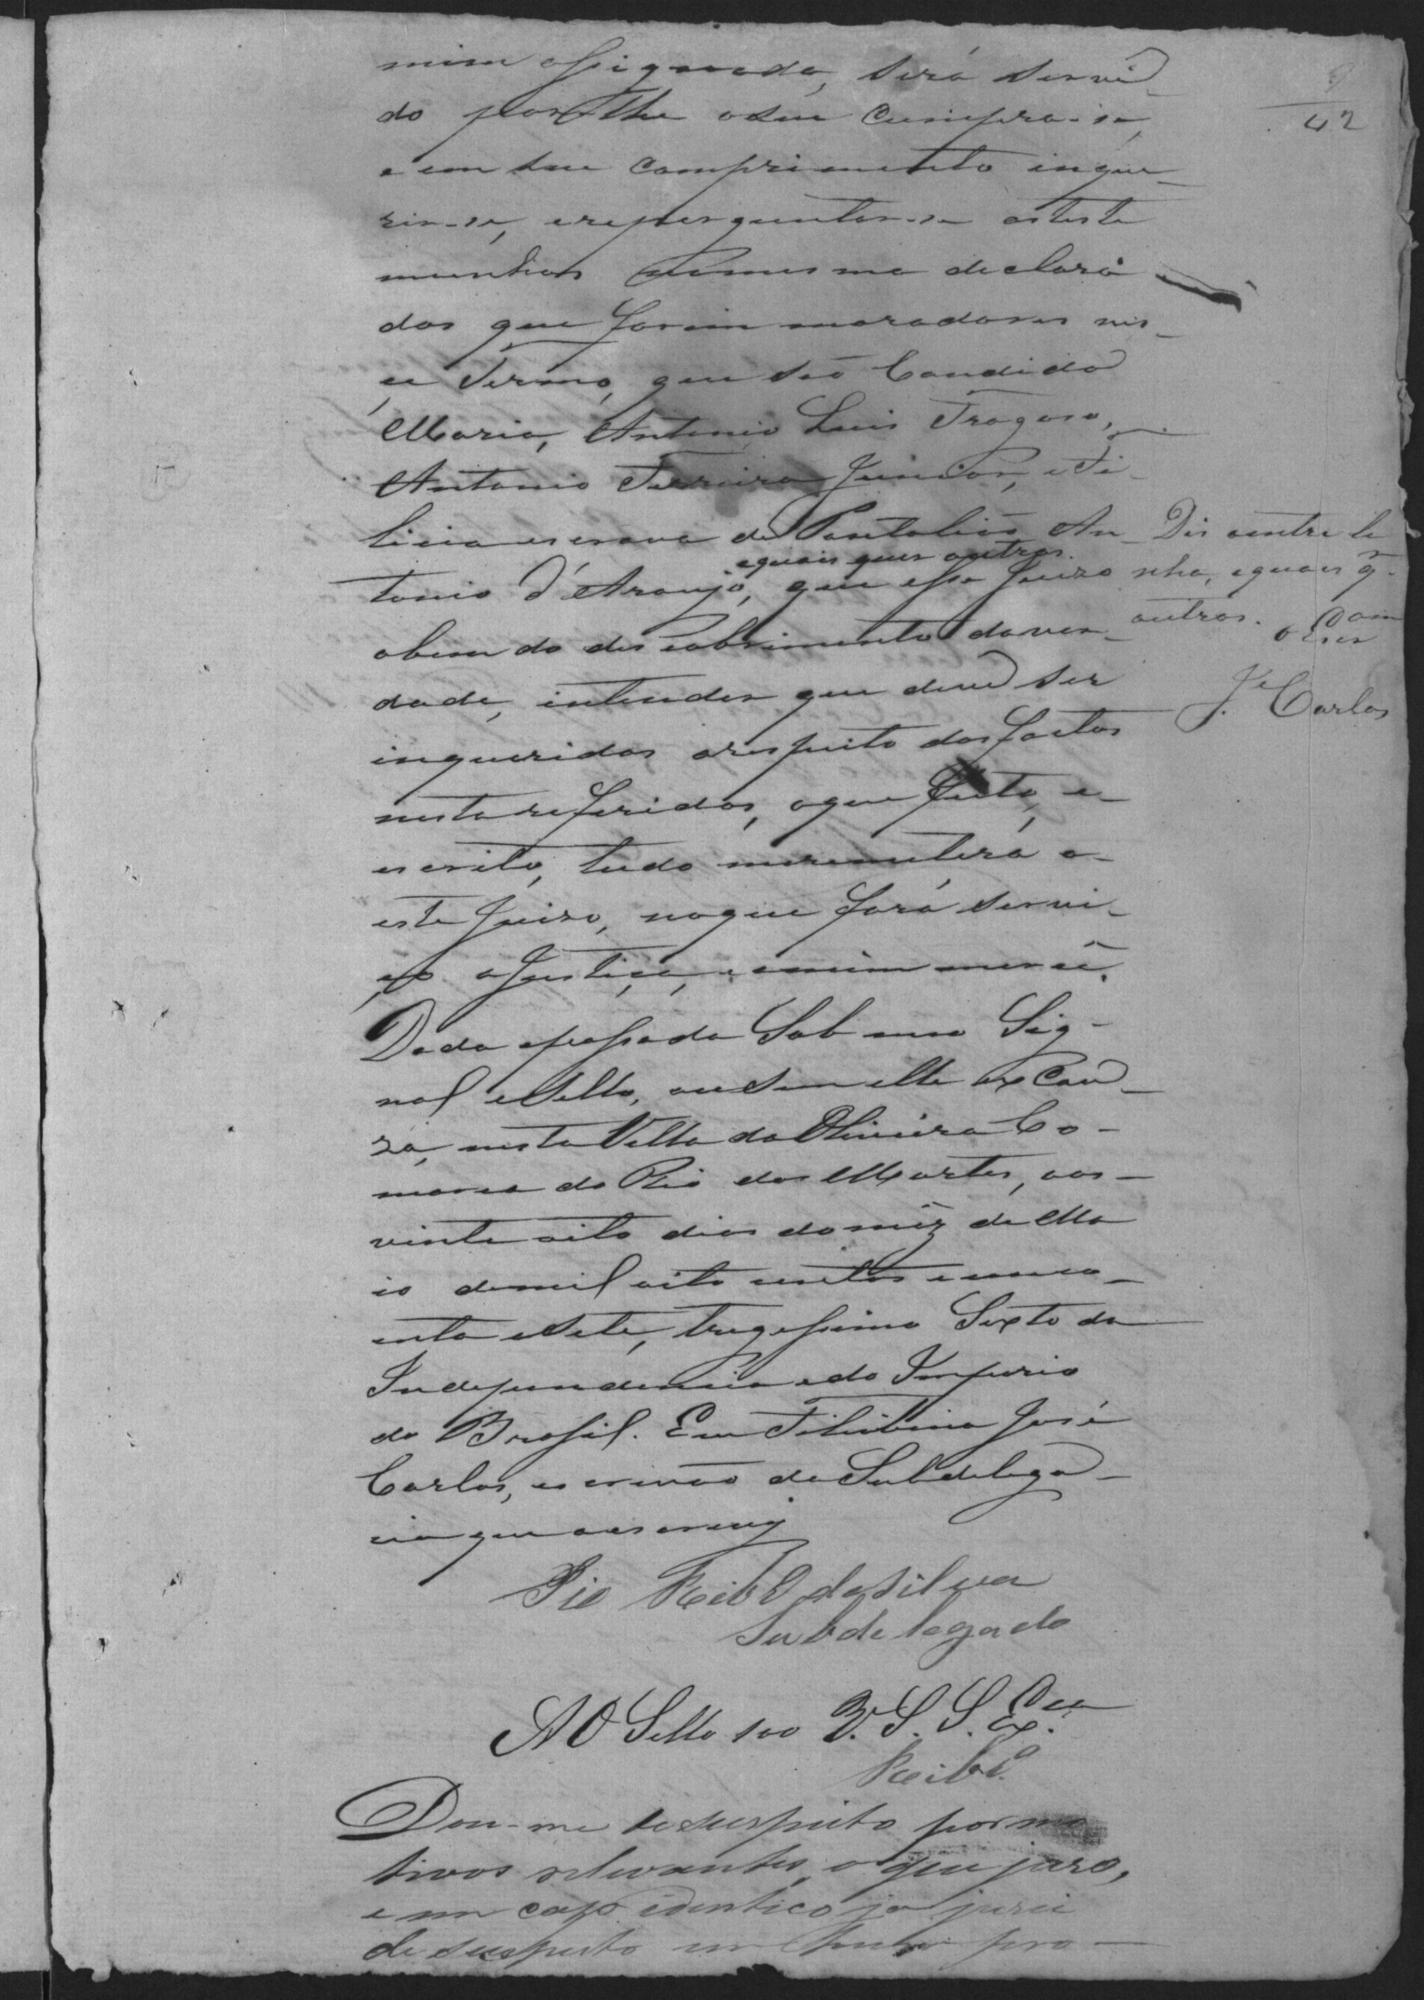 9
42
mim assignada, será servi-
do por-lhe o seu Cumpra-se,
e em seu comprimento inque-
rir-se, e repreguntar-se as teste
munhas na mesma declara
das que forem moradoras nes-
se Termo, que são Candida
Maria, Antonio Luis Fragoso,
Antonio Ferreira Junior, e Fi-
licia escrava de Pantalião An-
equais quer outros
tonio d'Araujo, que esse Juizo
abem do descobrimento daver-
dade, intender que devem ser
inqueridas arespeito dos factos
nesta referidos, oque feito, e
escrito, tudo meremeterá a
este Juizo, noque fará servi-
ço a Justiça, e amim mercê.
Dada epassada Sob meu Sig-
nal e Sello, ou sem elle ex Cau-
za, nesta Villa da Oliveira Co-
marca do Rio das Mortes, aos
vinte oito dias domêz de Ma
io demil oito centos e cinco-
enta esete, tregessimo Sexto da
Independencia edo Imperio
do Brasil. Eu Filisbino José
Carlos, escrivão da Subdelega-
cia que oescrevy
Dis aentre li
nha, equais q.
outros.
o Escr
J.e Carlos
Pio Ribr.o da Silva
Subdelegado
Ao Sello 100 V. S. S. Ex Cau
Ribr.o
Dou-me de suspeito por mo
tivos relevantes, o que juro,
e em caso identico ja jurei
de suspeito em outro pro-